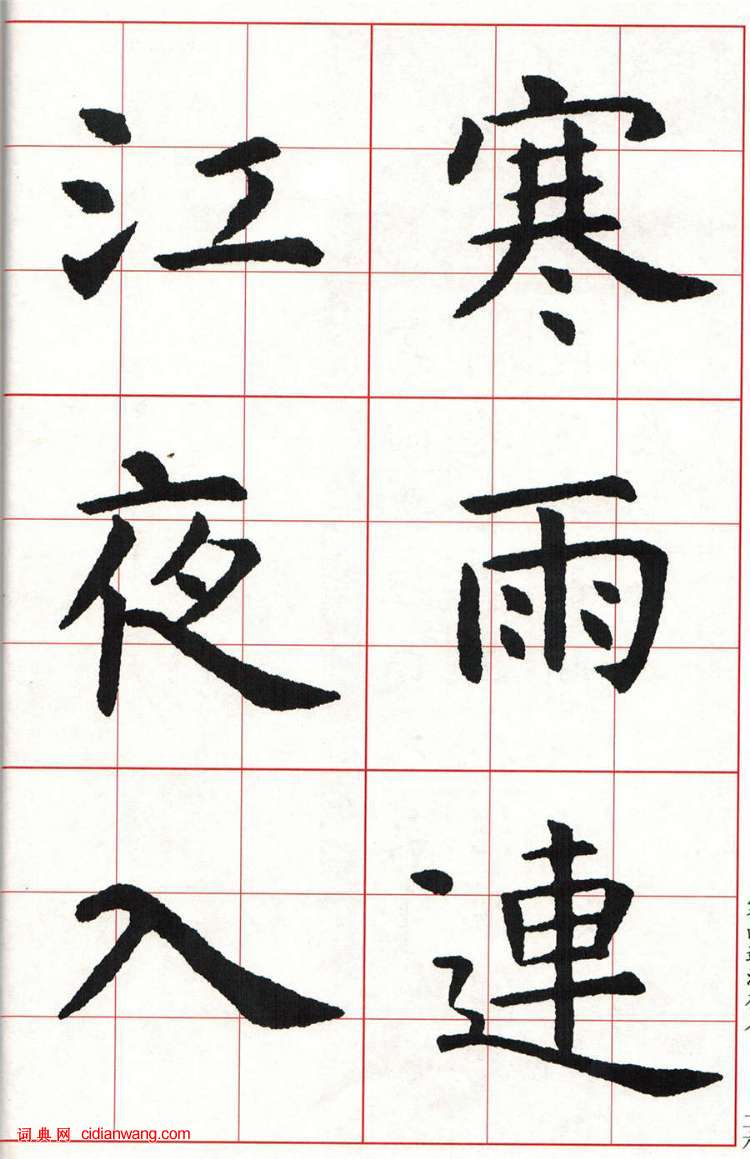 寒雨連
江夜入
词典网 cidianwang.com